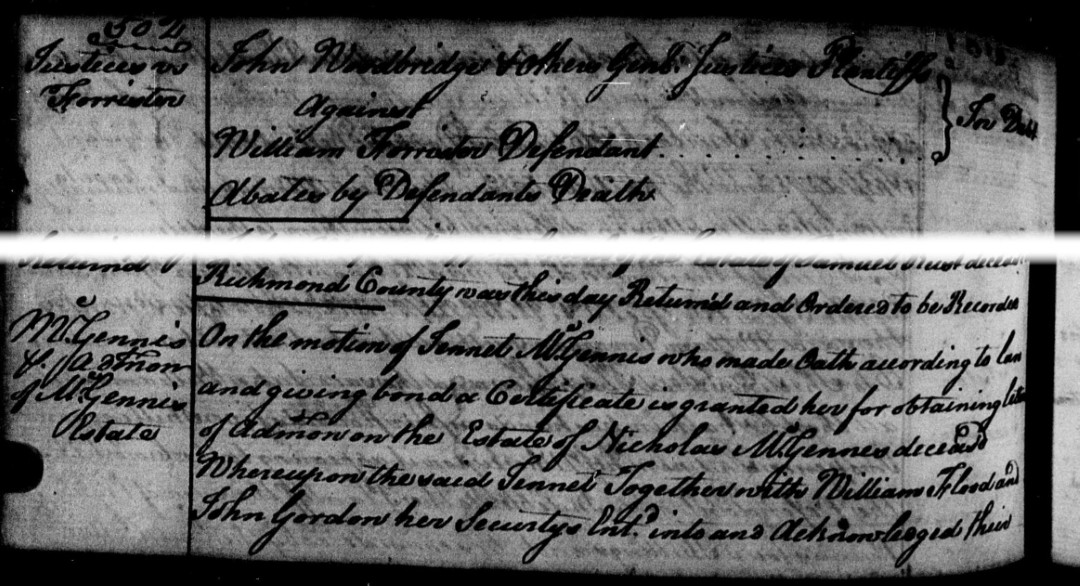 Justices vs
Forrister
John Woodbridge & others Gent. Justices Plaintiffs
Against
William Forrister Defendant
} For Debt
Abates by Defendants Death
Return'd
Samuel Rust deceas'd
Richmond County was this day Return'd and Ordered to be Recorded
McGennis
Cf. Admon
of McGennis
Estate
On the motion of Jennet McGennis who made Oath according to law
and giving bond a Certificate is granted her for obtaining
of Admon on the Estate of Nicholas McGennes deceas'd
Whereupon the said Jennet Together with William Flood and
John Gordon her Securitys Ent.d into and Acknowledged their